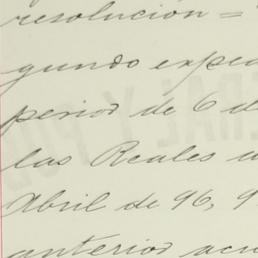 resolución =
gundo exped
perior de 6 d
las Reales
Abril de 96, 9
anterior acu